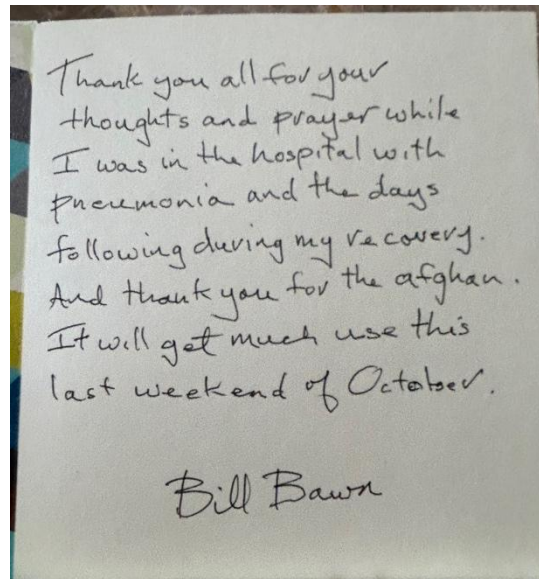 Thank you all for your
thoughts and prayer while
I was in the hospital with
pneumonia and the days
following during my recovery.
And thank you for the afghan.
It will get much use this
last weekend of October.
Bill Bawn